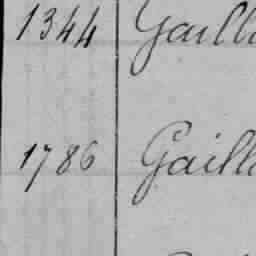 1344 Gaill
1786 Gaill